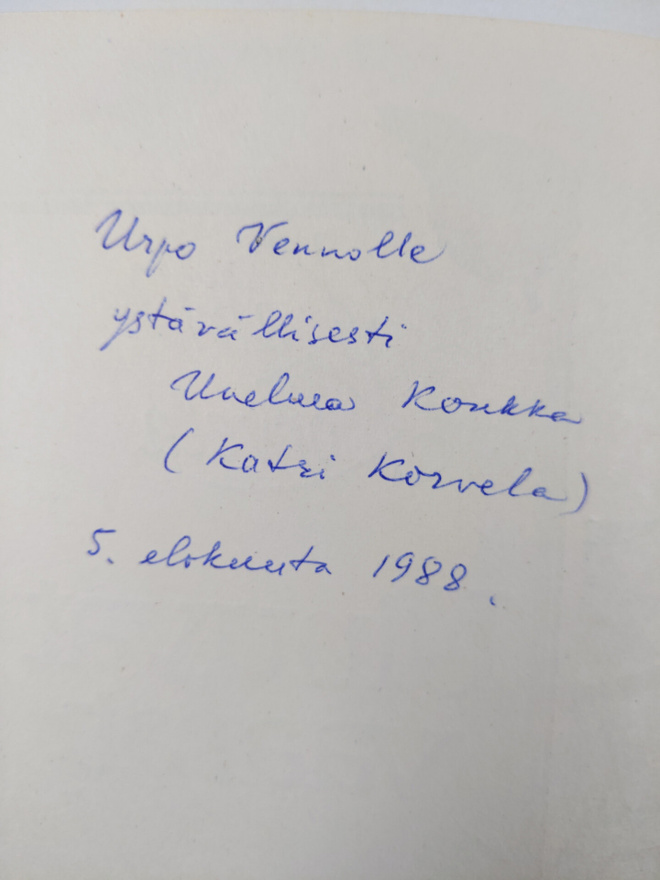 Urpo Vennolle
ystävällisesti
Unelma Konkka
(Katri Korvela)
5. elokuuta 1988.